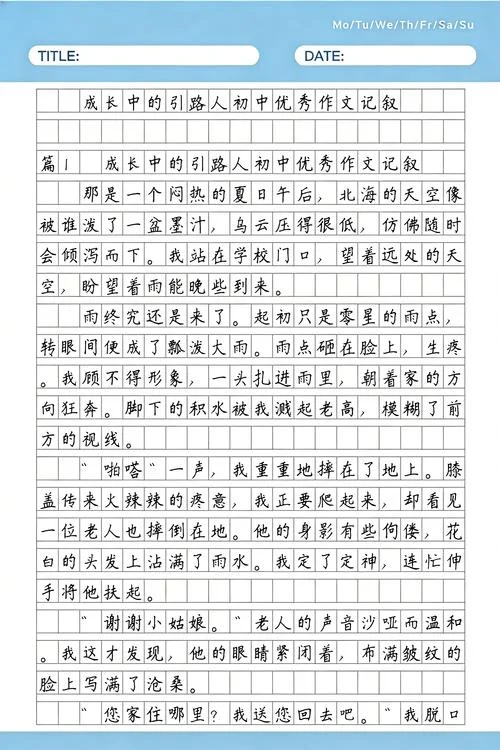 Mo/Tu/We/Th/Fr/Sa/Su
TITLE:
DATE:
成长中的引路人初中优秀作文记叙
篇1 成长中的引路人初中优秀作文记叙
那是一个闷热的夏日午后，北海的天空像
被谁泼了一盆墨汁，乌云压得很低，仿佛随时
会倾泻而下。我站在学校门口，望着远处的天
空，盼望着雨能晚些到来。
雨终究还是来了。起初只是零星的雨点，
转眼间便成了瓢泼大雨。雨点砸在脸上，生疼
。我顾不得形象，一头扎进雨里，朝着家的方
向狂奔。脚下的积水被我溅起老高，模糊了前
方的视线。
“啪嗒”一声，我重重地摔在了地上。膝
盖传来火辣辣的疼意，我正要爬起来，却看见
一位老人也摔倒在地。他的身影有些佝偻，花
白的头发上沾满了雨水。我定了定神，连忙伸
手将他扶起。
“谢谢小姑娘。”老人的声音沙哑而温和
。我这才发现，他的眼睛紧闭着，布满皱纹的
脸上写满了沧桑。
“您家住哪里？我送您回去吧。”我脱口